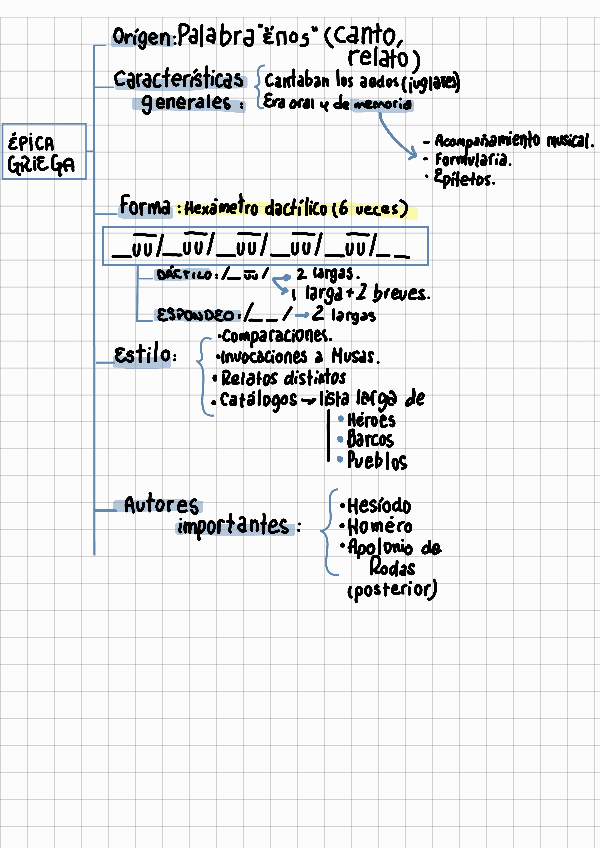 Orígen: Palabra "Énos" (canto,
relato)
Características
generales:
Cantaban los aedos (juglares)
Era oral y de memoria
ÉPICA
GRIEGA
- Acompañamiento musical.
· Formularia.
· Epítetos.
Forma: Hexámetro dactílico (6 veces)
__UU/__UU/__UU/__UU/__UU/__ __
DÁCTILO: /__UU/ → 2 largas.
1 larga + 2 breves.
ESPONDEO: /__ __/ → 2 largas
Estilo:
·Comparaciones.
·Invocaciones a Musas.
·Relatos distintos
·Catálogos → lista larga de
· Héroes
· Barcos
· Pueblos
Autores
importantes:
·Hesíodo
·Homéro
·Apolonio de
Rodas
(posterior)